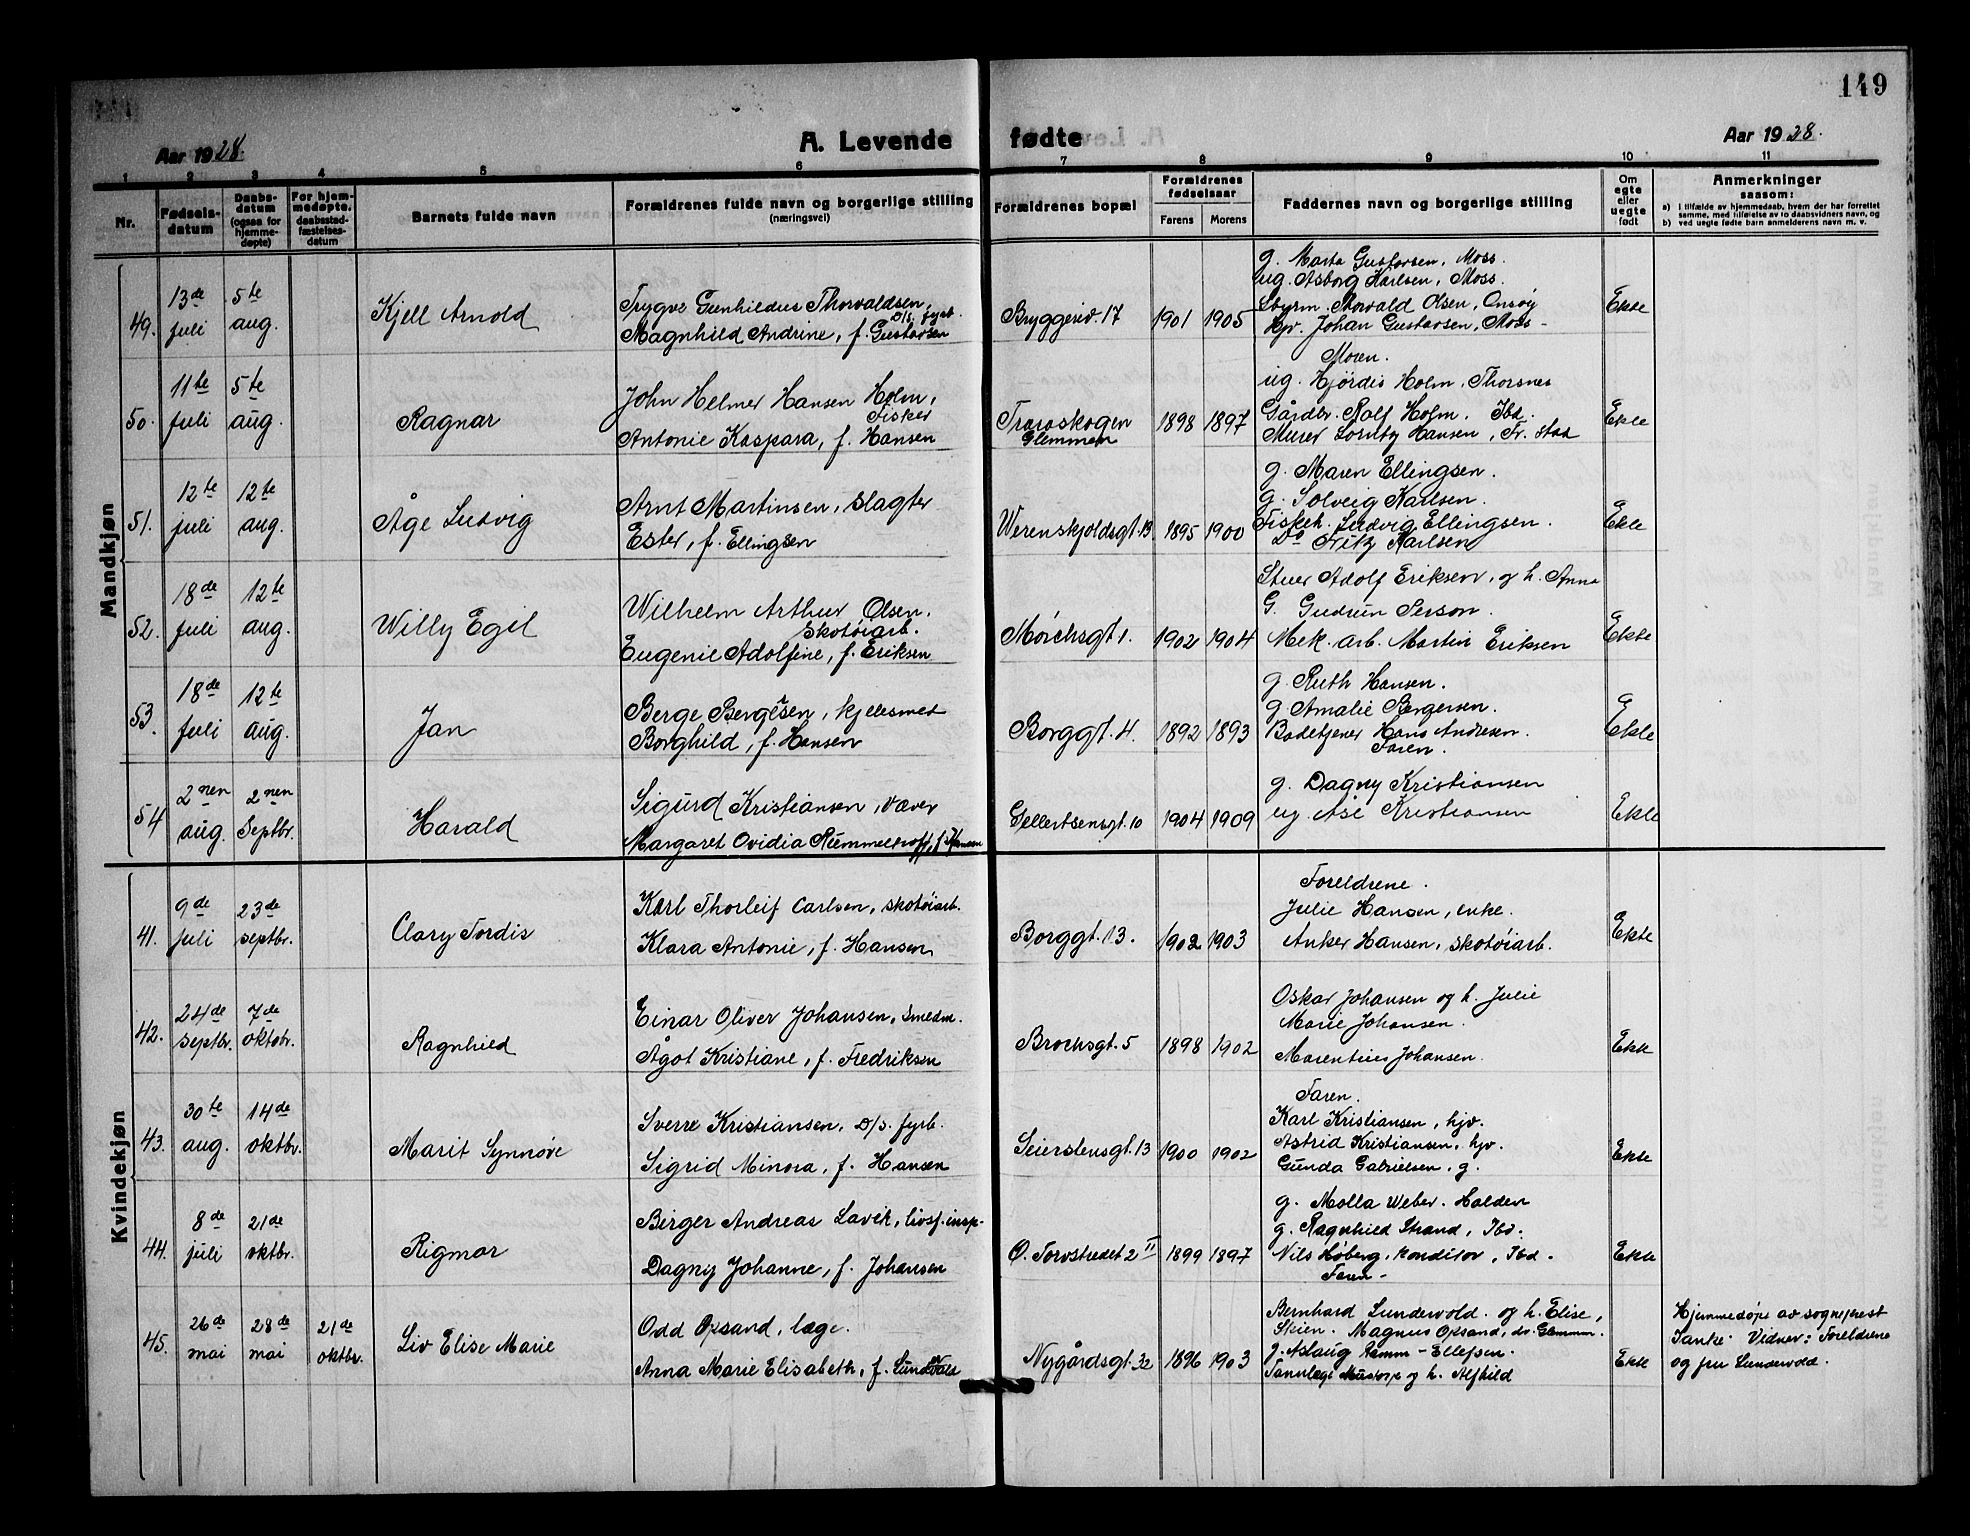 149
Aar 1928.
A. Levende fødte
Aar 1928.
1 2 3 4 5 6 7 8 9 10 11
Nr.
Fødsels-
datum
Daabs-
datum
(ogsaa for
hjemme-
døpte)
For hjem-
medøpte.
daabsstad-
fæstelses-
datum
Barnets fulde navn
Forældrenes fulde navn og borgerlige stilling
(næringsvei)
Forældrenes bopæl
Forældrenes
fødselsaar
Farens Morens
Faddernes navn og borgerlige stilling
Om
egte
eller
uegte
født
Anmerkninger
saasom:
a) i tilfælde av hjemmedaab, hvem der har forrettet
samme, med tilføielse av to daabsvidners navn, og
b) ved uegte fødte barn anmelderens navn m. v.
Mandkjøn
49. 13de juli 5te aug. Kjell Arnold
Trygve Gunhildus Thorvaldsen,
D/S. fyrb.
Magnhild Andrine, f. Gustavsen
Bryggeriv. 17 1901 1905
g. Marta Gustavsen, Moss.
ug. Asborg Karlsen, Moss.
Styrm. Torvald Olsen, Onsøy
hjv. Johan Gustavsen, Moss -
Ekte
50. 11te juli 5te aug. Ragnar
John Helmer Hansen Holm,
Fisker
Antonie Kaspara, f. Hansen
Traraskogen
Glemmen
1898 1897
Moren.
ug. Hjørdis Holm, Thorsnes
Gårdbr. Ralf Holm. Ibd.
Murer Hansen, Fr.stad
Ekte
51. 12te juli 12te aug. Åge Ludvig
Arnt Martinsen, slagter
Ester, f. Ellingsen
Werenskjoldsgt. 13. 1895 1900
g. Maren Ellingsen.
g. Solveig Karlsen.
Fiskeh. Ludvig Ellingsen.
Do Fritz Karlsen
Ekte
52. 18de juli 12te aug. Willy Egil
Wilhelm Arthur Olsen,
Skotøiarb.
Eugenie Adolfine, f. Eriksen
Mørchsgt. 1. 1902 1904
Stuer Adolf Eriksen, og h. Anna
G. Gudrun Person.
Mek. arb. Martin Eriksen
Ekte
53. 18de juli 12te aug. Jan
Berge Bergesen, kjelesmed
Borghild, f. Hansen
Borggt. 4. 1892 1893
g. Ruth Hansen.
g. Amalie Bergersen.
Badetjener Hans Andresen.
Faren.
Ekte
54 2nen aug. 2nen Septbr. Harald
Sigurd Kristiansen, væver
Margaret Ovidia Rummelhoff, f. Hansen
Gellertsensgt. 10 1904 1909
g. Dagny Kristiansen
ug. Åse Kristiansen
Ekte
Kvindekjøn
41. 9de juli 23de septbr. Clary Tordis
Karl Thorleif Carlsen, skotøiarb.
Klara Antonie, f. Hansen
Borggt. 13. 1902 1903
Foreldrene.
Julie Hansen, enke.
Anker Hansen, skotøiarb.
Ekte
42. 24de septbr. 7de oktobr. Ragnhild
Einar Oliver Johansen, smedm.
Ågot Kristiane, f. Fredriksen
Brochsgt. 5 1898 1902
Oskar Johansen og h. Julie
Marie Johansen.
Marentius Johansen.
Ekte
43. 30te aug. 14de oktbr. Marit Synnøve
Sverre Kristiansen, D/S. fyrb.
Sigrid Minora, f. Hansen
Seierstensgt. 13 1900 1902
Faren.
Karl Kristiansen, hjv.
Astrid Kristiansen, hjv.
Gunda Gabrielsen, g.
Ekte
44. 8de juli 21de oktbr. Rigmor
Birger Andreas Lavik, livsf. insp.
Dagny Johanne, f. Johansen
Ø. Torvstredet 2 II 1899 1897
g. Molla Weber. Halden
g. Ragnhild Strand, Ibd.
Nils Høberg, konditor, Ibd.
Faren -
Ekte
45. 26de mai 28de mai 21de oktbr. Liv Elise Marie
Odd Opsand, læge.
Anna Marie Elisabeth, f. Lundevold
Nygårdsgt. 32 1896 1903
Bernhard Lundevold. og h. Elise,
Skien. Magnus Opsand, dr. Glemmn.
g. Aslaug Ramm-Ellefsen.
Tannlæge og h. Alfhild
Ekte
Hjemmedøpt av sogneprest
Tanke. Vidner: Foreldrene
og fru Lundevold.